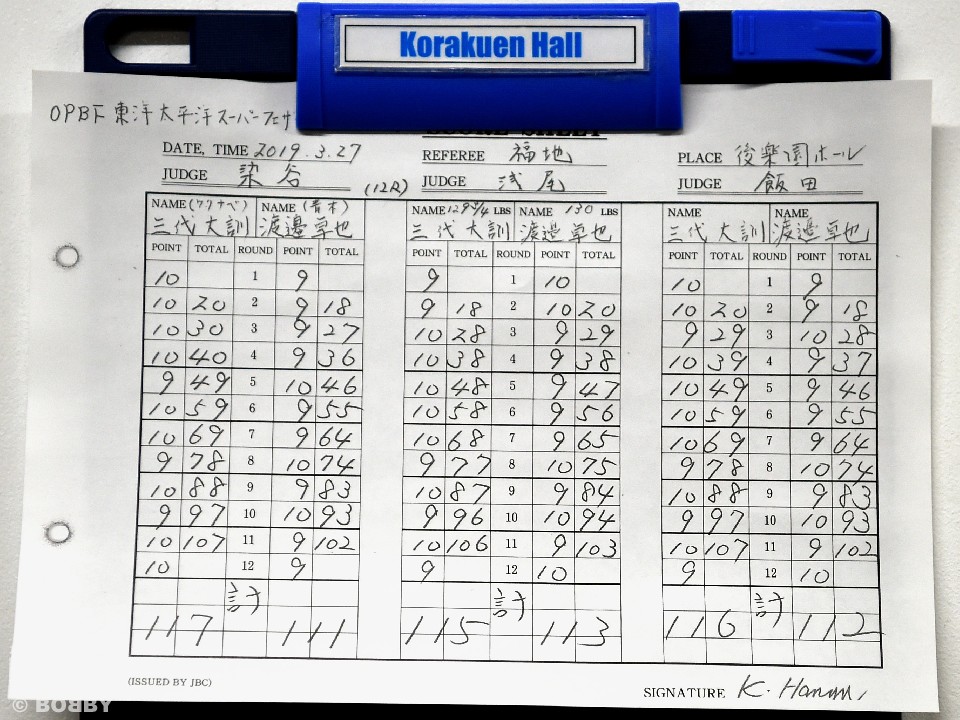 Korakuen Hall
OPBF 東洋太平洋スーパーフェザ
SCORE SHEET
DATE, TIME 2019.3.27 REFEREE 福地 PLACE 後楽園ホール
JUDGE 染谷 (12R) JUDGE 浅尾 JUDGE 飯田
NAME (ワタナベ) NAME (青木) NAME 129 3/4 LBS NAME 130 LBS NAME NAME
三代大訓 渡邉卓也 三代大訓 渡邉卓也 三代大訓 渡邉卓也
POINT TOTAL ROUND POINT TOTAL POINT TOTAL ROUND POINT TOTAL POINT TOTAL ROUND POINT TOTAL
10 1 9 9 1 10 10 1 9
10 20 2 9 18 9 18 2 10 20 10 20 2 9 18
10 30 3 9 27 10 28 3 9 29 9 29 3 10 28
10 40 4 9 36 10 38 4 9 38 10 39 4 9 37
9 49 5 10 46 10 48 5 9 47 10 49 5 9 46
10 59 6 9 55 10 58 6 9 56 10 59 6 9 55
10 69 7 9 64 10 68 7 9 65 10 69 7 9 64
9 78 8 10 74 9 77 8 10 75 9 78 8 10 74
10 88 9 9 83 10 87 9 9 84 10 88 9 9 83
9 97 10 10 93 9 96 10 10 94 9 97 10 10 93
10 107 11 9 102 10 106 11 9 103 10 107 11 9 102
10 12 9 9 12 10 9 12 10
計 計 計
117 111 115 113 116 112
(ISSUED BY JBC)
SIGNATURE K.
© BOBBY